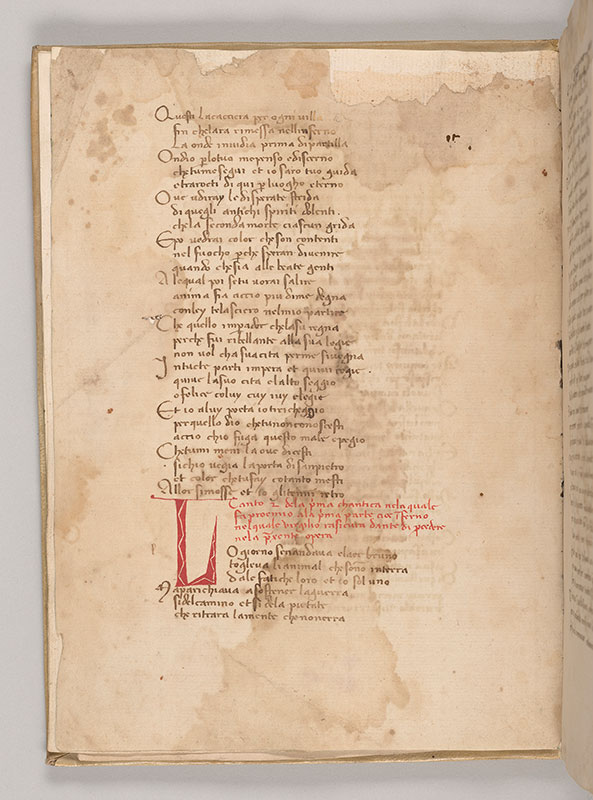 Questi lacacciera per ogni villa
fin chelara rimessa nellinferno
La onde invidia prima dipartilla
Ondio perlotuo mepenso ediscerno
chetumosegui et io saro tuo guida
etrarocti di qui per luogho eterno
Ove udiray le disperate strida
di quegli antichi spiriti dolenti
chela seconda morte ciascun grida
Epo vedrai color cheson contenti
nel fuocho perche speran divenire
quando chesia alle beate genti
Alequal poi setu vorai salire
anima fia accio piu dime degna
conley telasciero nelmio partire
Che quello impador chelasu regna
perche fui ribellante alla sua legie
non vol cha suacita perme sivegna
Intucte parti impera et quivi regie
quivi lasuo cita elalto seggio
o felice coluy cuy ivy elegie
Et io aluy poeta io tricheggio
perquello dio chetunonconoscesti
accio chio fuga questo male epegio
Chetumi meni la ove dicesti
sichio vegia laporta disanpietro
et color chetufay cotanto mesti
Allor simosse et io glitenni retro
Canto 2 dela prima chantica nela quale
fa prohemio ala prima parte cioe inferno
nelquale virgilio
dante di
nela presente opera
L
O giorno senandava elaer bruno
toglieva lianimal chesono interra
dale fatiche loro et io sol uno
Maparichiava asostener laguerra
sidelcamino et si dela pietate
che ritrara lamente chenonerra